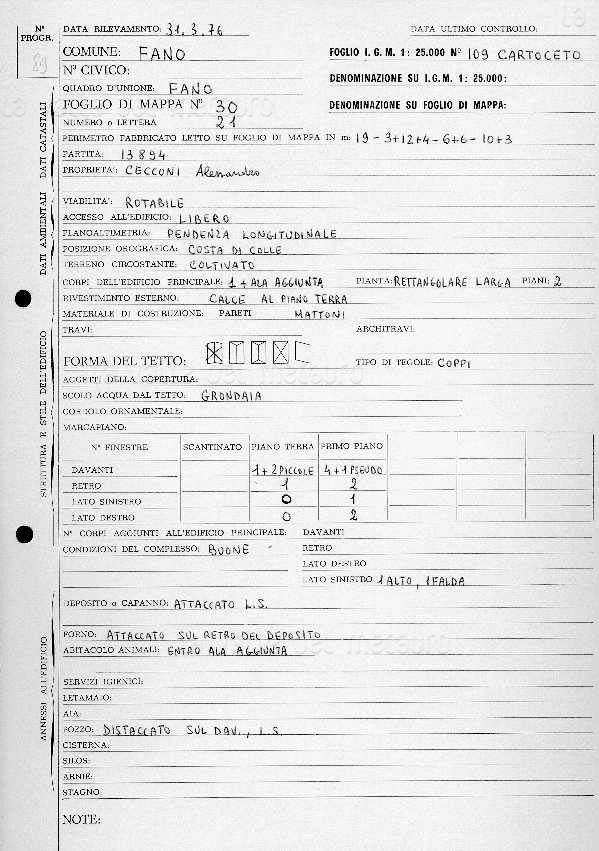 N° PROGR.
DATA RILEVAMENTO: 31.3.76
DATA ULTIMO CONTROLLO:
COMUNE: FANO
FOGLIO I.G.M. 1: 25.000 N° 109 CARTOCETO
N° CIVICO:
DENOMINAZIONE SU I.G.M. 1: 25.000:
QUADRO D'UNIONE: FANO
FOGLIO DI MAPPA N° 30
DENOMINAZIONE SU FOGLIO DI MAPPA:
NUMERO o LETTERA 21
PERIMETRO FABBRICATO LETTO SU FOGLIO DI MAPPA IN m: 19-3+12+4-6+6-10+3
PARTITA: 13894
PROPRIETA': CECCONI Alessandro
DATI CATASTALI
VIABILITA': ROTABILE
ACCESSO ALL'EDIFICIO: LIBERO
PLANOALTIMETRIA: PENDENZA LONGITUDINALE
POSIZIONE OROGRAFICA: COSTA DI COLLE
TERRENO CIRCOSTANTE: COLTIVATO
DATI AMBIENTALI
CORPI DELL'EDIFICIO PRINCIPALE: 1 + ALA AGGIUNTA PIANTA: RETTANGOLARE LARGA PIANI: 2
RIVESTIMENTO ESTERNO: CALCE AL PIANO TERRA
MATERIALE DI COSTRUZIONE: PARETI MATTONI
TRAVI:
ARCHITRAVI:
FORMA DEL TETTO:
TIPO DI TEGOLE: COPPI
AGGETTI DELLA COPERTURA:
SCOLO ACQUA DAL TETTO: GRONDAIA
CORDOLO ORNAMENTALE:
MARCAPIANO:
N° FINESTRE SCANTINATO PIANO TERRA PRIMO PIANO
DAVANTI 1+2PICCOLE 4+1PSEUDO
RETRO 1 2
LATO SINISTRO 0 1
LATO DESTRO 0 2
STRUTTURA E STILE DELL'EDIFICIO
N° CORPI AGGIUNTI ALL'EDIFICIO PRINCIPALE: DAVANTI
CONDIZIONI DEL COMPLESSO: BUONE
RETRO
LATO DESTRO
LATO SINISTRO 1 ALTO, 1 FALDA
DEPOSITO o CAPANNO: ATTACCATO L.S.
FORNO: ATTACCATO SUL RETRO DEL DEPOSITO
ABITACOLO ANIMALI: ENTRO ALA AGGIUNTA
SERVIZI IGIENICI:
LETAMAIO:
AIA:
POZZO: DISTACCATO SUL DAV., L.S.
CISTERNA:
SILOS:
ARNIE:
STAGNO:
ANNESSI ALL'EDIFICIO
NOTE: